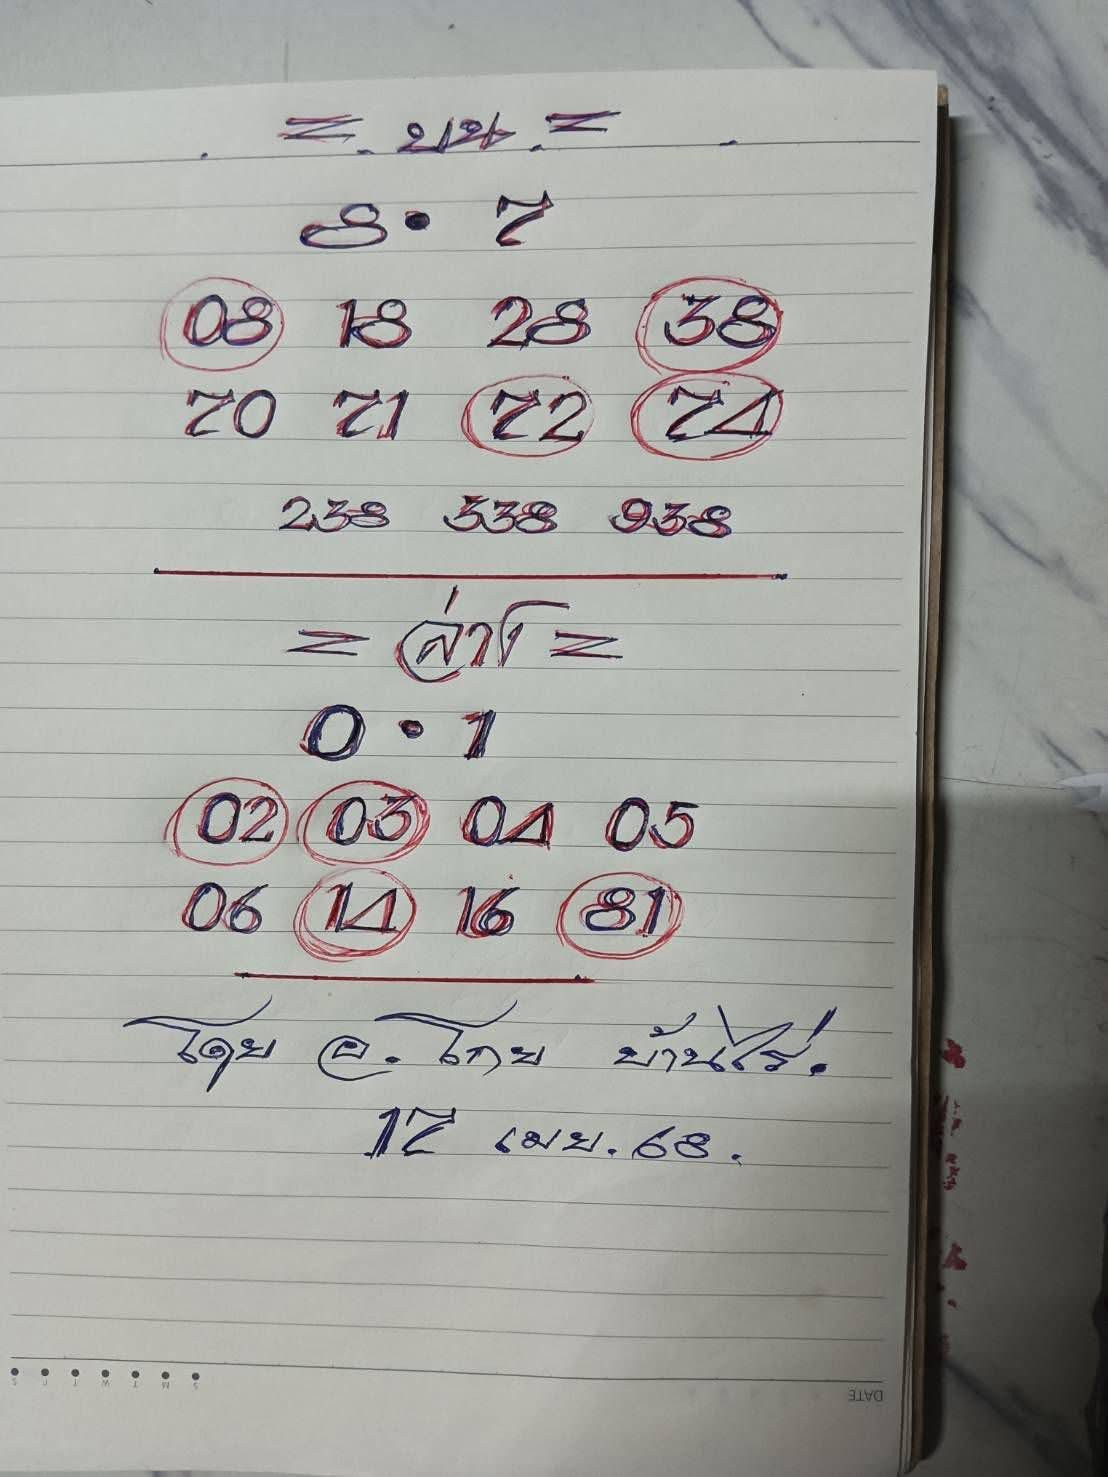 = บน =
8 • 7
08 18 28 38
70 71 72 74
238 538 938
= ล่าง =
0 • 1
02 03 04 05
06 14 16 81
โดย อ. โกย บ้านไร่.
17 เมย. 68.
S M T W T F S
DATE